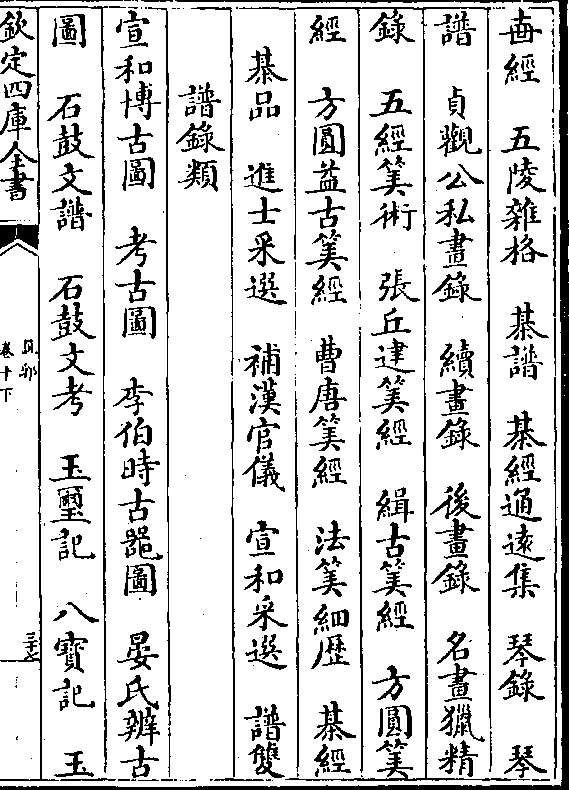 毎經　五陵雜格　棊譜　棊經通遠集　琴錄　琴
譜　貞觀公私畫錄　續畫錄　後畫錄　名畫獵精
錄　五經筭術　張丘建筭經　緝古筭經　方圓筭
經　方圓益古筭經　曹唐筭經　法筭細歷　棊經
棊品　進士采選　補漢官儀　宣和采選　譜雙
譜錄類
宣和博古圖　考古圖　李伯時古器圖　晏氏辨古
圖　石鼓文譜　石鼓文考　玉璽記　八寶記　玉
欽定四庫全書
卷十下
三十七